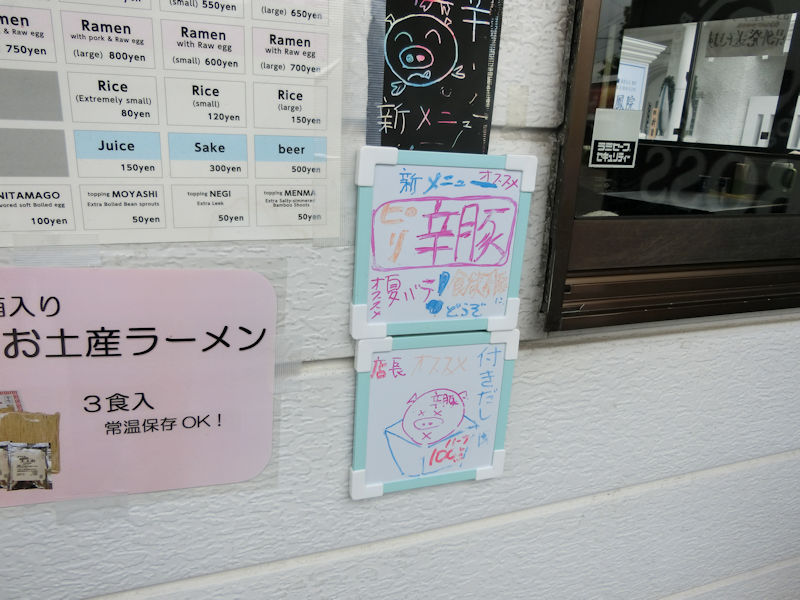 (small) 550yen
(large) 650yen
& Raw egg
750yen
Ramen
with pork & Raw egg
(large) 800yen
Ramen
with Raw egg
(small) 600yen
Ramen
with Raw egg
(large) 700yen
Rice
(Extremely small)
80yen
Rice
(small)
120yen
Rice
(large)
150yen
Juice
150yen
Sake
300yen
beer
500yen
NITAMAGO
flavored soft Boiled egg
100yen
topping MOYASHI
Extra Boiled Bean sprouts
50yen
topping NEGI
Extra Leek
50yen
topping MENMA
Extra Salty-simmered
Bamboo Shoots
50yen
箱入り
お土産ラーメン
3食入
常温保存OK!
辛
新メニュー
新メニュー オススメ
ピリ辛豚
オススメ
夏バテ!
に
どうぞ
店長 オススメ
付きだし
辛豚
100
ラミセーフ
セキュリティー
院